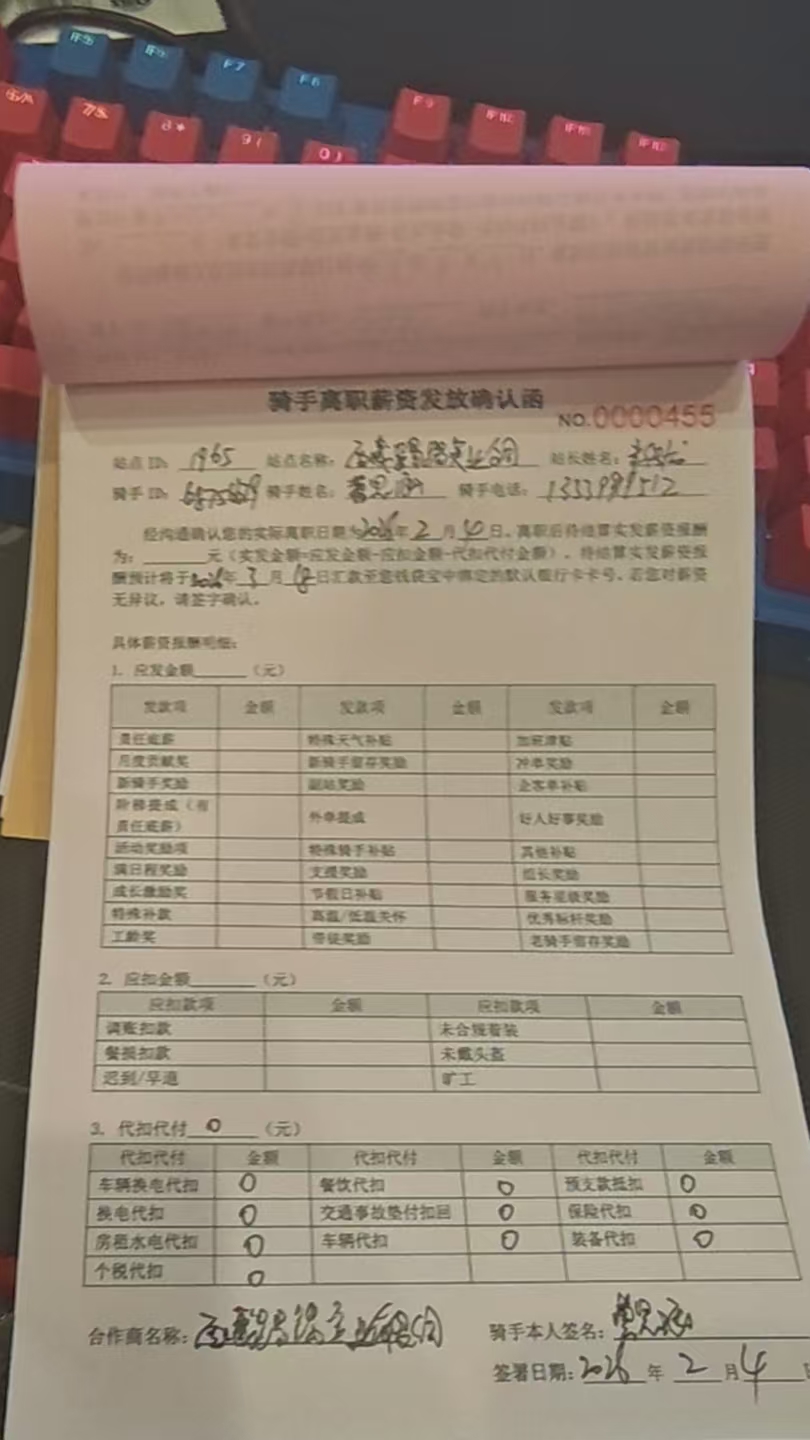 F5 F6 F7 F8
6 7 8* 9( 0) F9
骑手离职薪资发放确认函
NO.0000455
站点ID: 1965 站点名称: 站长姓名:
骑手ID: 骑手姓名: 骑手电话:
经沟通确认您的实际离职日期为2026年2月4日。离职后待结算实发薪资报酬
为:______元(实发金额=应发金额-应扣金额-代扣代付金额)。待结算实发薪资报
酬预计将于2026年3月18日汇款至您钱袋宝中绑定的默认银行卡卡号。若您对薪资
无异议,请签字确认。
具体薪资报酬明细:
1. 应发金额______(元)
发款项 金额 发款项 金额 发款项 金额
责任底薪 特殊天气补贴 加班津贴
月度贡献奖 新骑手留存奖励 冲单奖励
新骑手奖励 副站奖励 企客单补贴
阶梯提成(有 外单提成 好人好事奖励
责任底薪)
活动奖励项 特殊骑手补贴 其他补贴
满日程奖励 支援奖励 组长奖励
成长激励奖 节假日补贴 服务星级奖励
特殊补款 高温/低温关怀 优秀标杆奖励
工龄奖 带徒奖励 老骑手留存奖励
2. 应扣金额______(元)
应扣款项 金额 应扣款项 金额
调账扣款 未合规着装
餐损扣款 未戴头盔
迟到/早退 旷工
3. 代扣代付 0 (元)
代扣代付 金额 代扣代付 金额 代扣代付 金额
车辆换电代扣 0 餐饮代扣 0 预支款抵扣 0
换电代扣 0 交通事故垫付扣回 0 保险代扣 0
房租水电代扣 0 车辆代扣 0 装备代扣 0
个税代扣 0
合作商名称: 骑手本人签名:
签署日期: 2026年2月4日